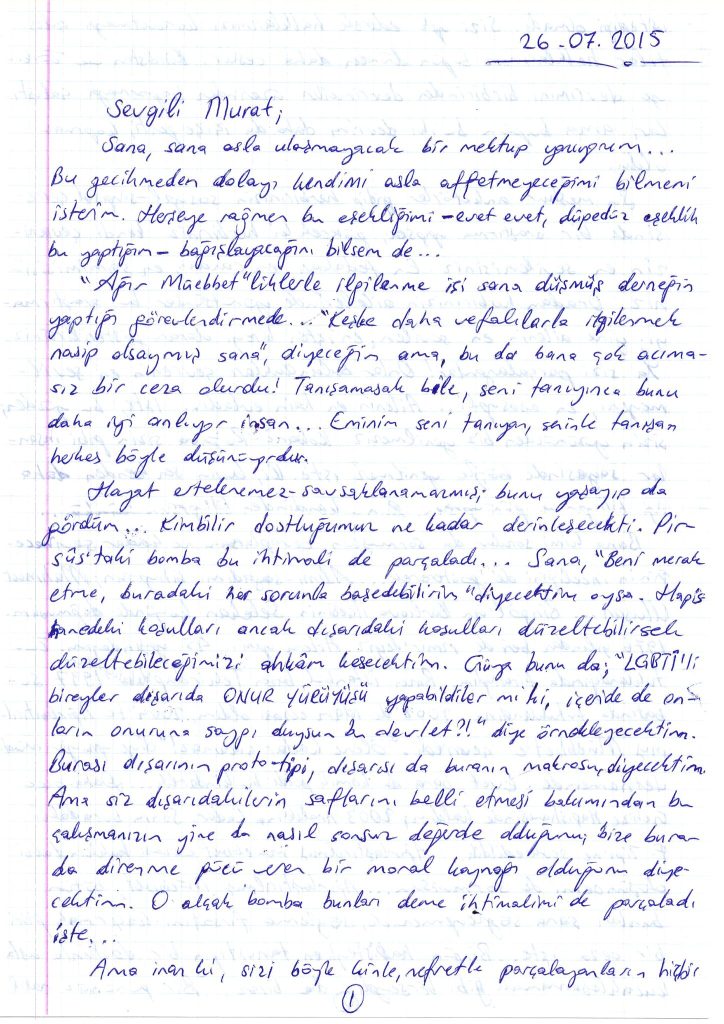 26-07.2015
Sevgili Murat;
Sana, sana asla ulaşmayacak bir mektup yazıyorum...
Bu gecikmeden dolayı kendimi asla affetmeyeceğimi bilmeni
isterim. Herşeye rağmen bu eşekliğimi -evet evet, düpedüz eşeklik
bu yaptığım- bağışlayacağını bilsem de...
"Ağır Müebbet"liklerle ilgilenme işi sana düşmüş derneğin
yaptığı görevlendirmede... "Keşke daha vefalılarla ilgilenmek
nasip olsaymış sana", diyeceğim ama, bu da bana çok acıma-
sız bir ceza olurdu! Tanışamasak bile, seni tanıyınca bunu
daha iyi anlıyor insan... Eminim seni tanıyan, seninle tanışan
herkes böyle düşünüyordur.
Hayat ertelenemez-savsaklanamazmış; bunu yaşayıp da
gördüm... Kimbilir dostluğumuz ne kadar derinleşecekti. Pir-
süs'taki bomba bu ihtimali de parçaladı... Sana, "Beni merak
etme, buradaki her sorunla başedebilirim" diyecektim oysa. Hapis
hanedeki koşulları ancak dışarıdaki koşulları düzeltebilirsek
düzeltebileceğimizi ahkâm kesecektim. Güya bunu da; "LGBTİ'li
bireyler dışarıda ONUR YÜRÜYÜŞÜ yapabildiler mi ki, içeride de on-
ların onuruna saygı duysun bu devlet?!" diye örnekleyecektim.
Burası dışarının proto-tipi, dışarısı da buranın makrosu, diyecektim.
Ama siz dışarıdakilerin saflarını belli etmesi bakımından bu
çalışmanızın yine da nasıl sonsuz değerde olduğunu; bize bura-
da direnme gücü veren bir moral kaynağı olduğunu diye-
cektim. O alçak bomba bunları deme ihtimalimi de parçaladı
işte...
Ama inan ki, sizi böyle kinle, nefretle parçalayanların hiçbir
1